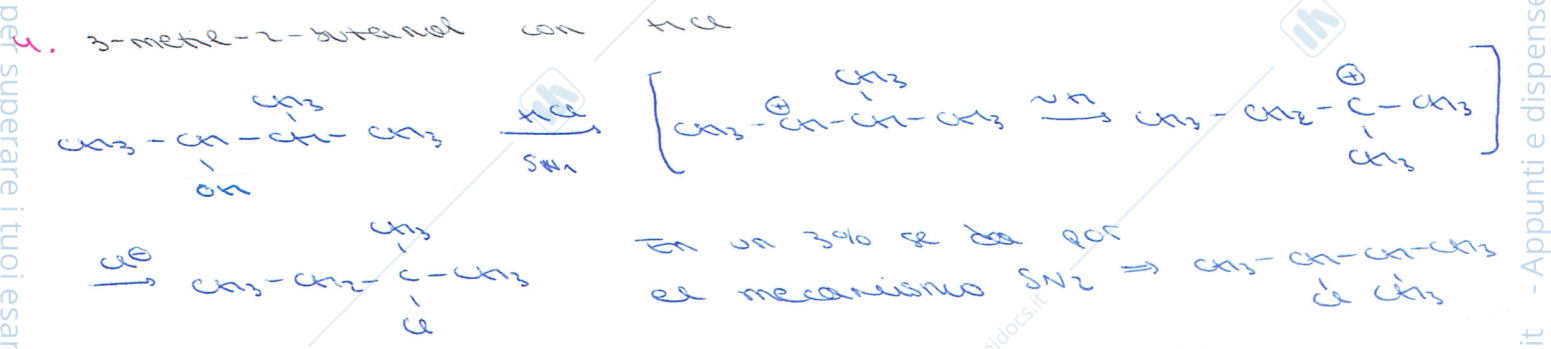 4. 3-metil-2-butanol con HCl
CH3 - CH - CH - CH3
CH3
OH
HCl
SN1
[CH3 - CH⊕ - CH - CH3
CH3
NH
CH3 - CH2 - C - CH3]
⊕
CH3
Cl⊖
CH3 - CH2 - C - CH3
CH3
Cl
En un 3% se da por
el mecanismo SN2 ⇒ CH3 - CH - CH - CH3
Cl CH3
per superare i tuoi esa
it - Appunti e dispense
idocs.it